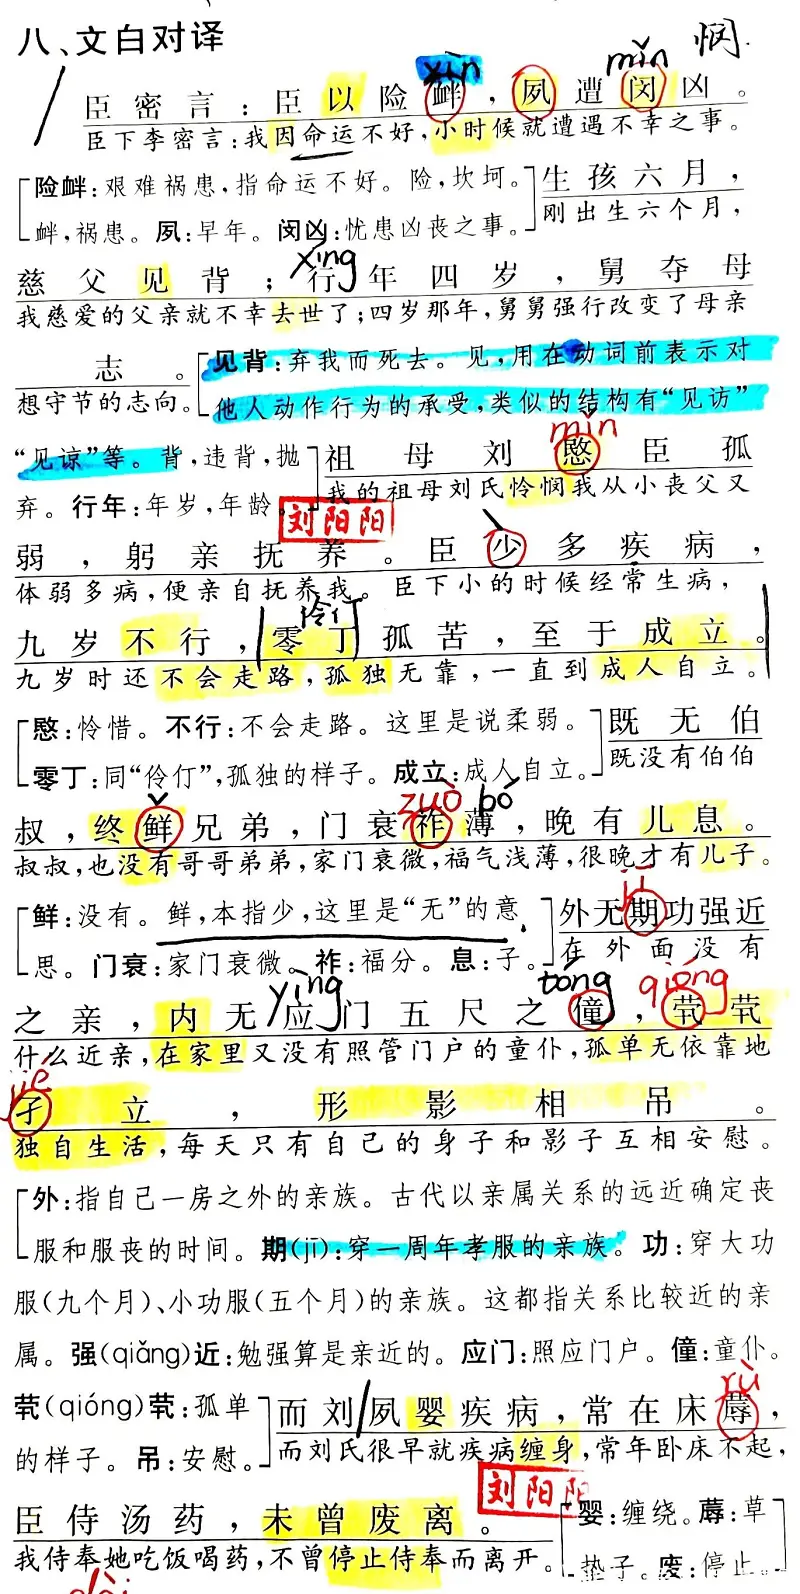 八、文白对译
xìn
mǐn
悯
臣密言：臣以险衅，夙遭闵凶。
臣下李密言：我因命运不好，小时候就遭遇不幸之事。
险衅：艰难祸患，指命运不好。险，坎坷。
衅，祸患。夙：早年。闵凶：忧患凶丧之事。
生孩六月，
刚出生六个月，
xíng
慈父见背；行年四岁，舅夺母
我慈爱的父亲就不幸去世了；四岁那年，舅舅强行改变了母亲
志。
想守节的志向。
见背：弃我而死去。见，用在动词前表示对
他人动作行为的承受，类似的结构有“见访”
“见谅”等。背，违背，抛
弃。行年：年岁，年龄。
mǐn
祖母刘愍臣孤
我的祖母刘氏怜悯我从小丧父又
刘阳阳
弱，躬亲抚养。臣少多疾病，
体弱多病，便亲自抚养我。臣下小的时候经常生病，
伶仃
九岁不行，零丁孤苦，至于成立。
九岁时还不会走路，孤独无靠，一直到成人自立。
愍：怜惜。不行：不会走路。这里是说柔弱。
零丁：同“伶仃”，孤独的样子。成立：成人自立。
既无伯
既没有伯伯
zuò bó
叔，终鲜兄弟，门衰祚薄，晚有儿息。
叔叔，也没有哥哥弟弟，家门衰微，福气浅薄，很晚才有儿子。
鲜：没有。鲜，本指少，这里是“无”的意
思。门衰：家门衰微。祚：福分。息：子。
jī
外无期功强近
在外面没有
yìng
tóng
qióng
之亲，内无应门五尺之僮，茕茕
什么近亲，在家里又没有照管门户的童仆，孤单无依靠地
jié
孑立，形影相吊。
独自生活，每天只有自己的身子和影子互相安慰。
外：指自己一房之外的亲族。古代以亲属关系的远近确定丧
服和服丧的时间。期(jī)：穿一周年孝服的亲族。功：穿大功
服(九个月)、小功服(五个月)的亲族。这都指关系比较近的亲
属。强(qiǎng)近：勉强算是亲近的。应门：照应门户。僮：童仆。
茕(qióng)茕：孤单
的样子。吊：安慰。
rù
而刘夙婴疾病，常在床蓐，
而刘氏很早就疾病缠身，常年卧床不起，
刘阳阳
臣侍汤药，未曾废离。
我侍奉她吃饭喝药，不曾停止侍奉而离开。
婴：缠绕。蓐：草
垫子。废：停止。